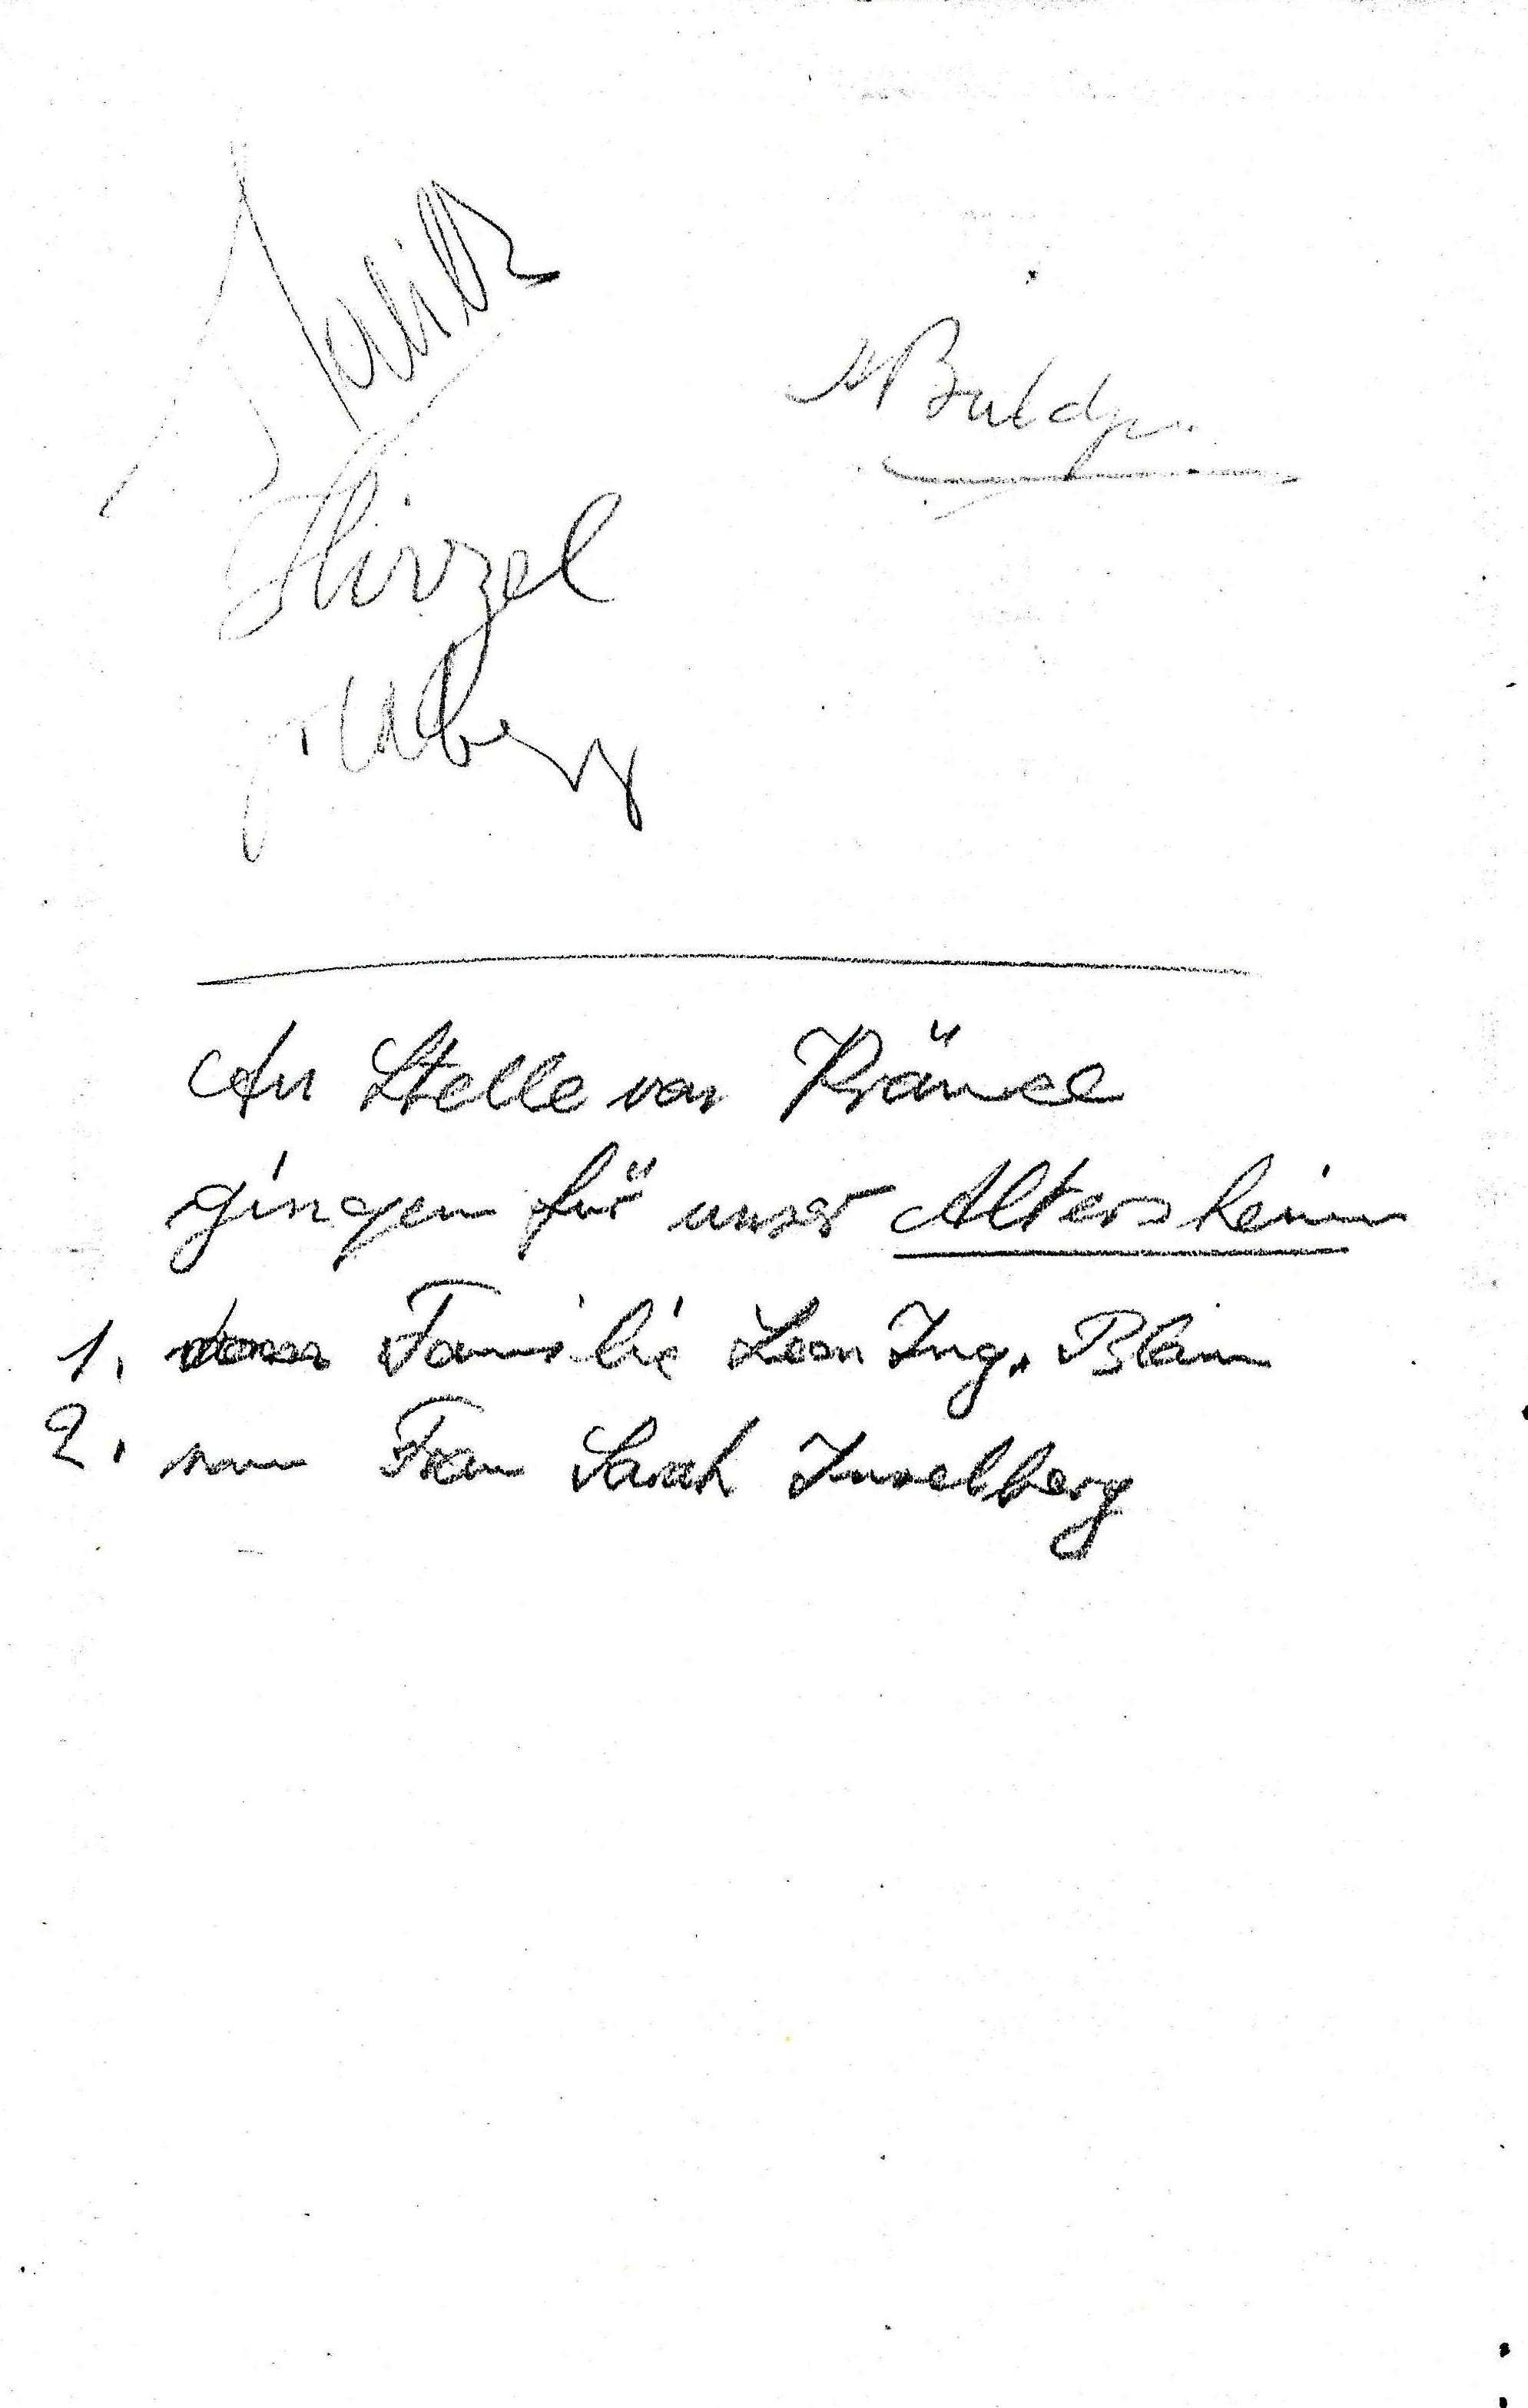 Hirzel
An Stelle von Kränze
gingen für unser Altersheim
1. von Familie Leon Ing. Blum
2. von Frau Sarah Inselberg